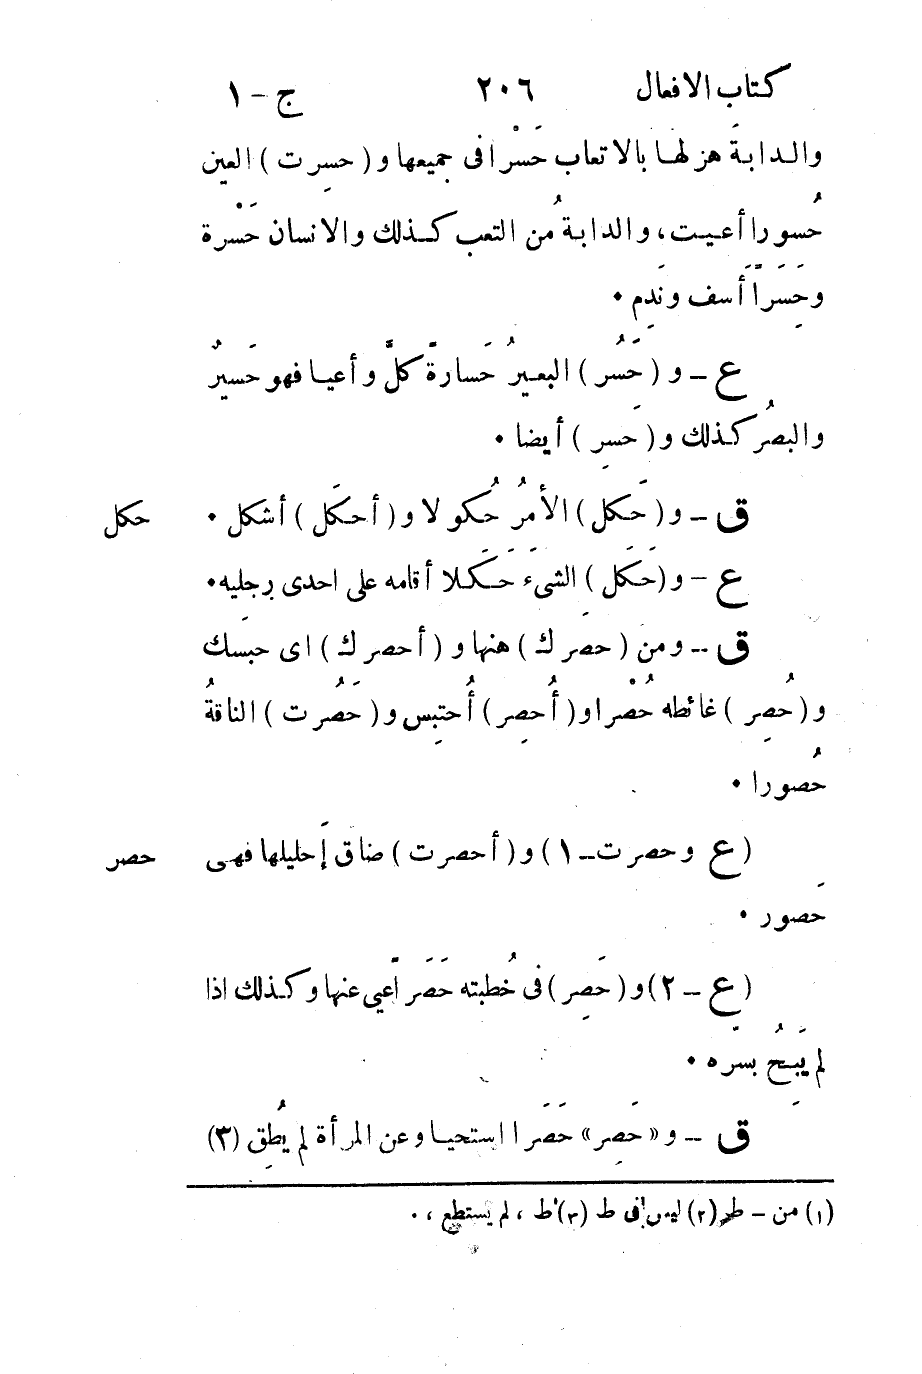 كتاب الافعال ٢٠٦ ج-١
والدابةَ هزلها بالاتعاب حَسْرا فى جميعها و( حسِرت ) العين
حُسورا أعيت، والدابةُ من التعب كذلك والانسان حَسْرة
وحَسَراً أسف وندِم ٠
ع - و ( حَسُر ) البعيرُ حَسارةً كلَّ وأعيا فهو حَسيرٌ
والبصُر كذلك و( حَسِر ) أيضا ٠
ق - و( حَكل ) الأمرُ حُكولا و( أحكَل ) أشكل ٠ حكل
ع - و( حَكَل ) الشىءَ حَكَلا أقامه على احدى رجليه٠
ق -- ومن ( حصَرك ) هنها و ( أحصرك ) اى حبَسك
و( حُصِر ) غائطه حُصْرا و( أُحصِر ) أُحتبِس و( حَصُرت ) الناقةُ
حُصورا ٠
( ع وحصرت-١ ) و( أحصرت ) ضاق إَحليلها فهى حصر
حَصور ٠
( ع - ٢) و( حَصِر ) فى خُطبته حَصَراً عيي عنها وكذلك اذا
لم يَبُح بسرّه ٠
ق -- و «حَصِر» حَصَرا استحيا وعن المرأة لم يُطِق (٣)
(١) من - ط (٢) ليس فى ط (٣) ط ، لم يستطع ، ٠